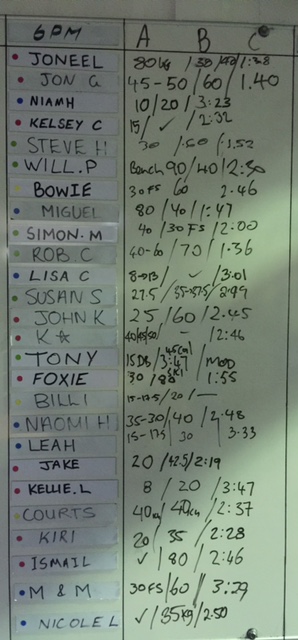 6PM A B C
JONEEL 80kg /30/40/1:38
JON G 45-50/60/1.40
NIAMH 10/20/3:23
KELSEY C 15/✓/2:32
STEVE H 30 /50/1.52
WILL.P Bench 90/40/2:30
BOWIE 30FS 60 2.46
MIGUEL 80/40/1:47
SIMON.M 40/30FS/2:00
ROB.C 40-60/70/1.36
LISA C ✓/3:01
SUSAN S 27.5/35-37.5/2:99
JOHN K 25/60/2.45
K☆ 40/45/50/-/2:46
TONY 15DB/3:47/MOD
FOXIE 30/88/1:55
BILLI 15-17.5/20/—
NAOMI H 35-30/40/2:48
LEAH 15-17.5 30 3:33
JAKE 20/42.5/2:19
KELLIE.L 8/20/3:47
COURTS 40kg/40kg/2:37
KIRI 20/35/2:28
ISMAIL ✓/80/2:46
M & M 30FS/60/3:29
NICOLE L ✓/35kg/2:50